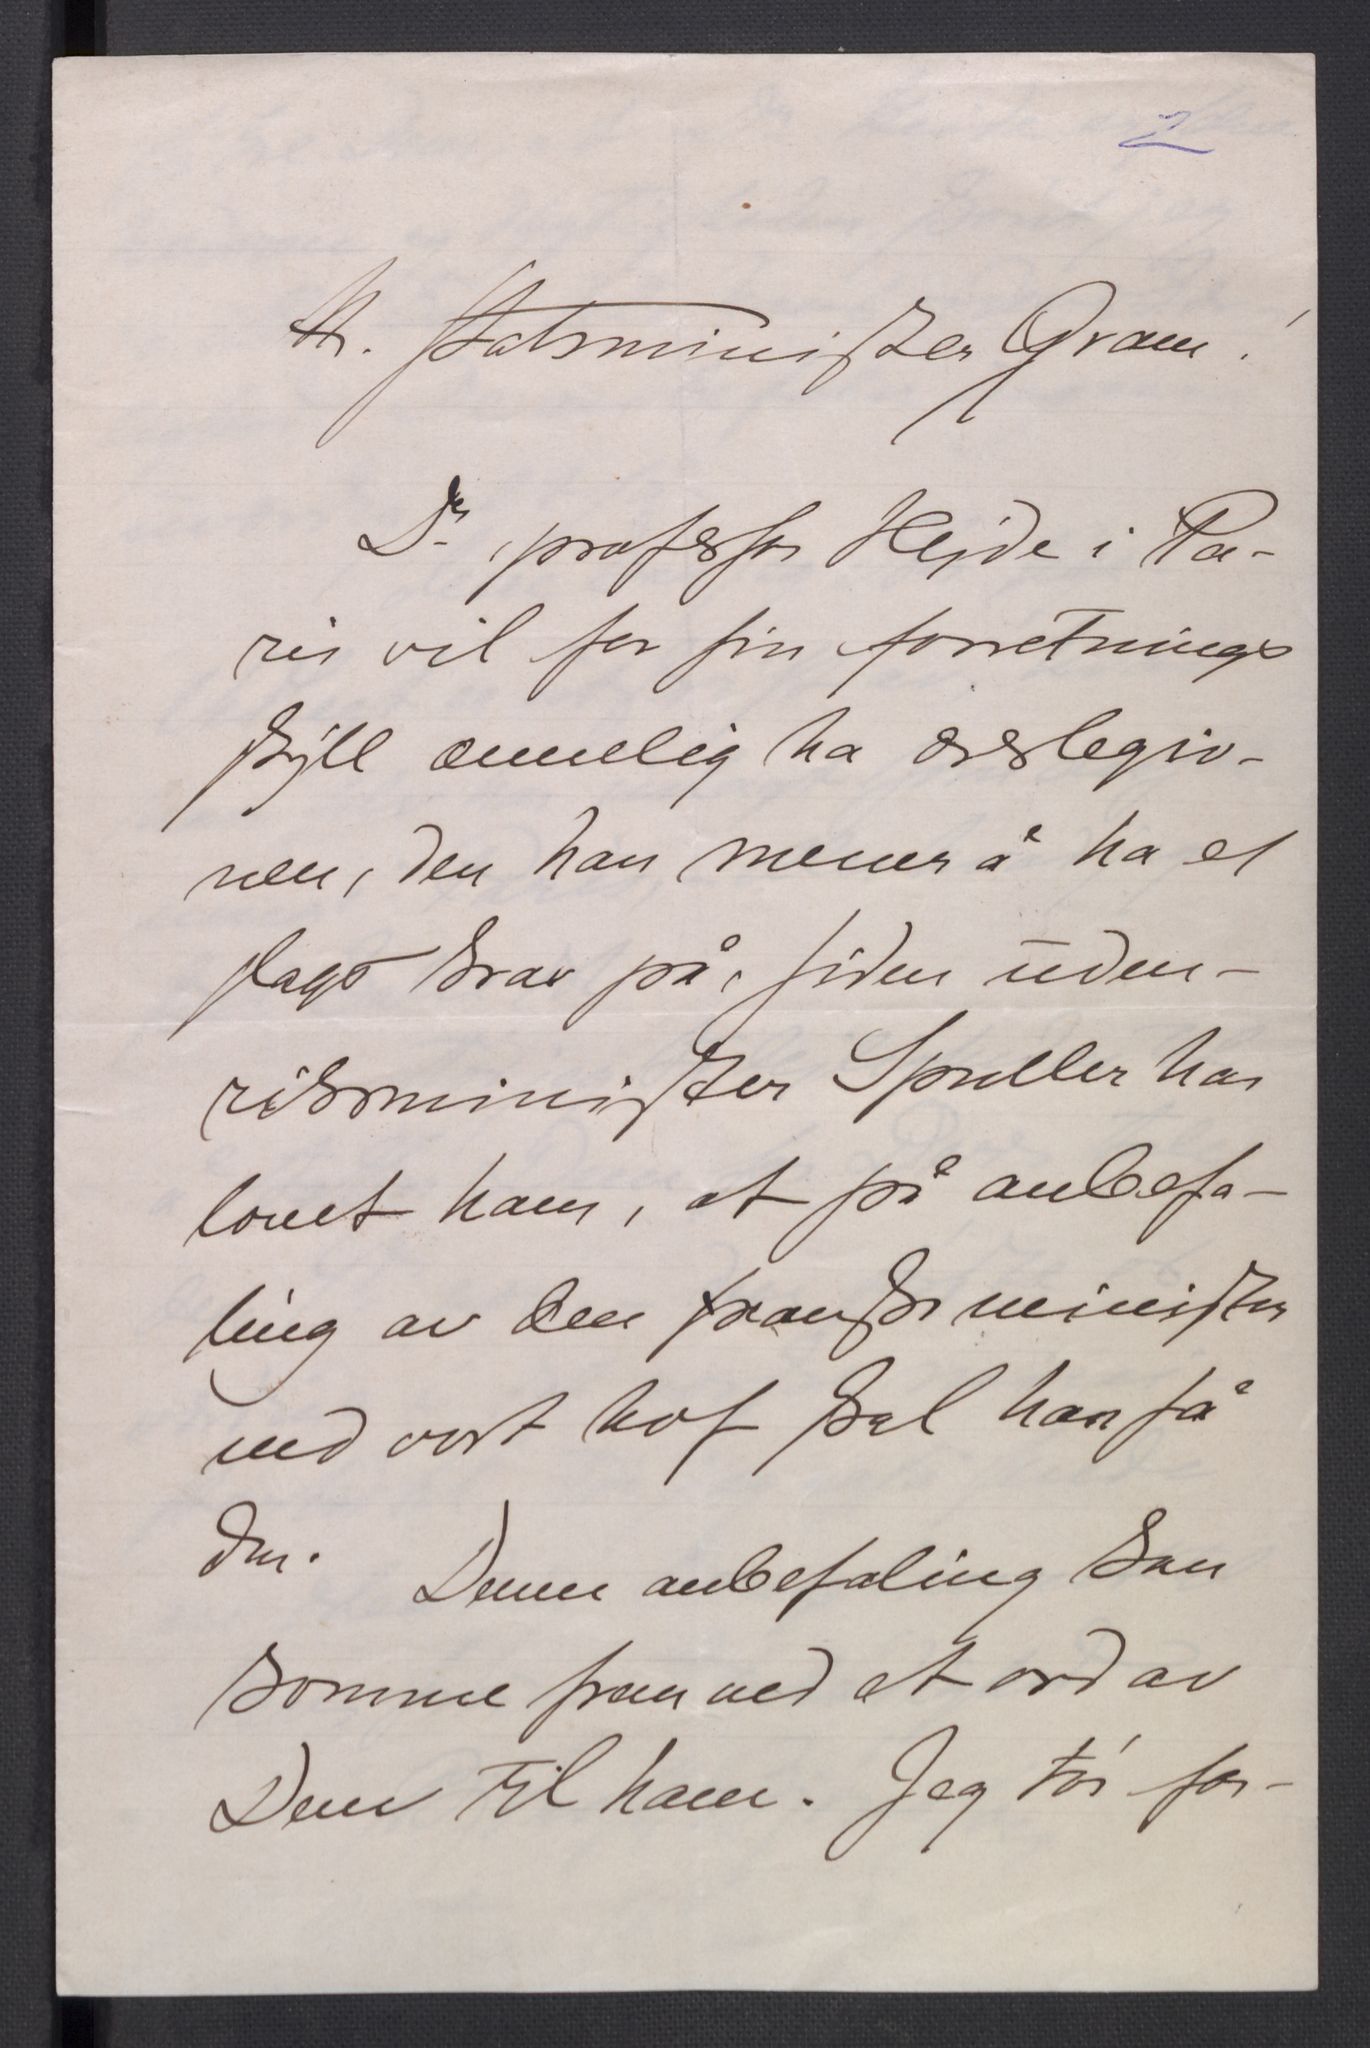 2
Hr. statsminister Gram!
Dr, professor Hejde i Pa-
ris vil for sin forretnings
skyll ænnelig ha æreslegio-
nen, den han mener å ha et
slags krav på, siden uden-
riksminister Spuller har
lovet ham, at på anbefa-
ling av den franske minister
ved vort hof skal han få
den. Denne anbefaling kan
komme fram ved et ord av
Dem til ham. Jeg tör for-